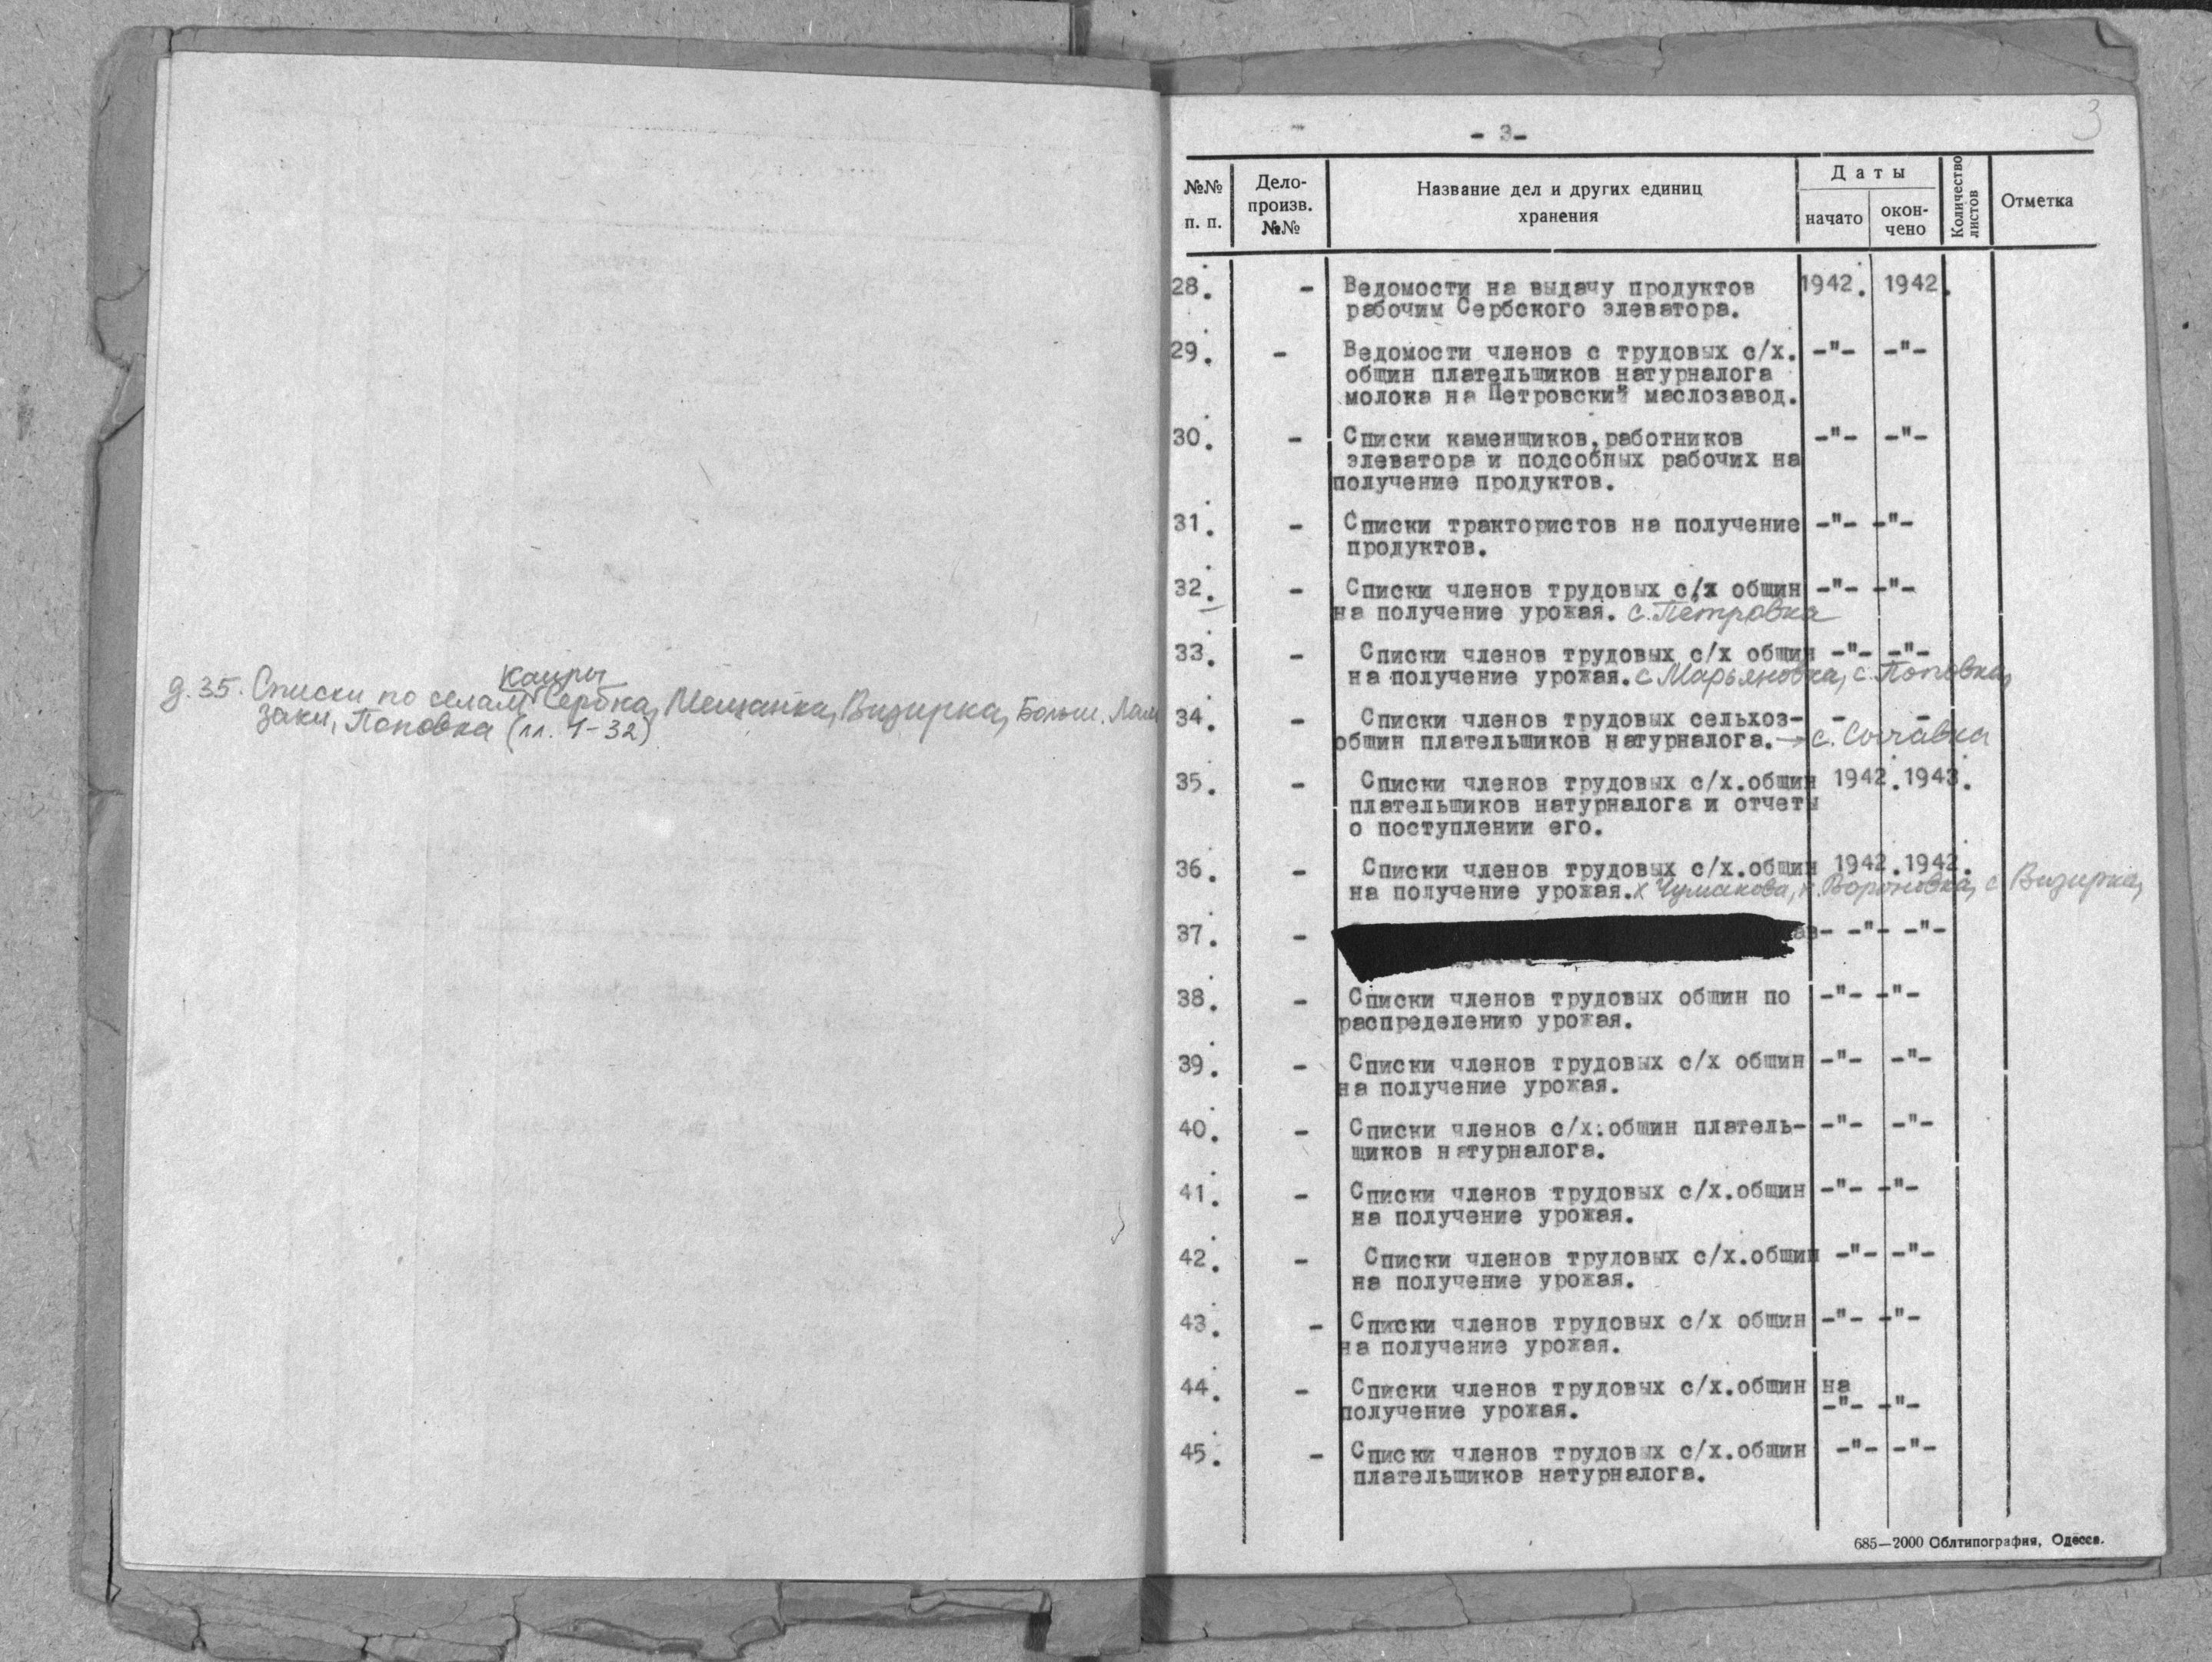 Каиры
д. 35. Списки по селам Сербка, Мещанка, Визирка, Больш. Лам
заки, Поповка (лл. 1-32)
3
- 3-
№№ п. п.
Дело-произв. №№
Название дел и других единиц хранения
Даты
начато
окон-чено
Количество листов
Отметка
28. - Ведомости на выдачу продуктов 1942. 1942.
рабочим Сербского элеватора.
29. - Ведомости членов с трудовых с/х. -"- -"-
общин плательщиков натурналога
молока на Петровский маслозавод.
30. - Списки каменщиков, работников -"- -"-
элеватора и подсобных рабочих на
получение продуктов.
31. - Списки трактористов на получение -"- -"-
продуктов.
32. - Списки членов трудовых с/х общин -"- -"-
на получение урожая. с. Петровка
33. - Списки членов трудовых с/х общин -"- -"-
на получение урожая. с. Марьяновка, с. Поповка,
34. - Списки членов трудовых сельхоз- - -
общин плательщиков натурналога. → с.
35. - Списки членов трудовых с/х.общин 1942. 1943.
плательщиков натурналога и отчеты
о поступлении его.
36. - Списки членов трудовых с/х.общин 1942. 1942.
на получение урожая. х Чумакова, х. Вороновка, с Визирка,
37. - -"- -"-
38. - Списки членов трудовых общин по -"- -"-
распределению урожая.
39. - Списки членов трудовых с/х общин -"- -"-
на получение урожая.
40. - Списки членов с/х.общин платель- -"- -"-
щиков натурналога.
41. - Списки членов трудовых с/х.общин -"- -"-
на получение урожая.
42. - Списки членов трудовых с/х.общин -"- -"-
на получение урожая.
43. - Списки членов трудовых с/х общин -"- -"-
на получение урожая.
44. - Списки членов трудовых с/х.общин на
получение урожая. -"- -"-
45. - Списки членов трудовых с/х.общин -"- -"-
плательщиков натурналога.
685—2000 Облтипография, Одесса.